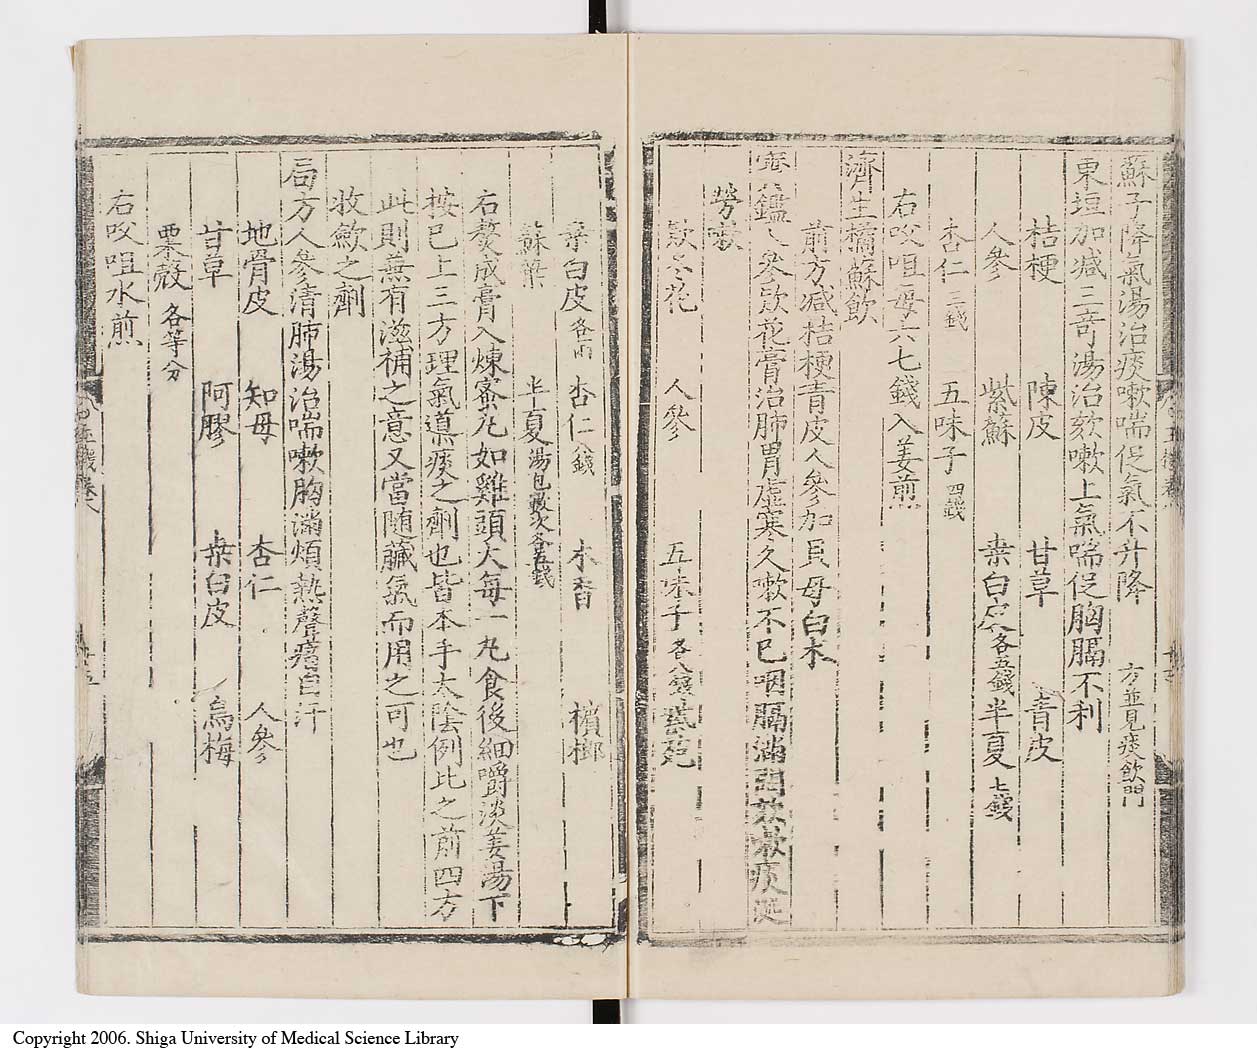 蘇子降氣湯治痰嗽喘促氣不升降 方並見痰飲門
東垣加減三奇湯治欬嗽上氣喘促胸膈不利
桔梗 陳皮 甘草 青皮
人參 紫蘇 桒白皮各五錢半夏七錢
杏仁三錢 五味子四錢
右㕮咀每六七錢入姜煎
濟生橘蘇飲
前方減桔梗青皮人參加貝母白朮
寶鑑人參欵花膏治肺胃虛寒久嗽不已咽膈滿悶欬嗽痰涎
勞嗽
欵冬花 人參 五味子各八錢 紫菀
桒白皮各一兩 杏仁八錢 木香 檳榔
蘇葉 半夏湯包數次各五錢
右熬成膏入煉蜜丸如雞頭大每一丸食後細嚼淡姜湯下
按已上三方理氣導痰之劑也皆本手太陰例此之前四方
此則兼有滋補之意又當随臟氣而用之可也
收歛之劑
局方人參清肺湯治喘嗽胸滿煩熱聲瘖自汗
地骨皮 知母 杏仁 人參
甘草 阿膠 桒白皮 烏梅
粟殼各等分
右㕮咀水煎
Copyright 2006. Shiga University of Medical Science Library